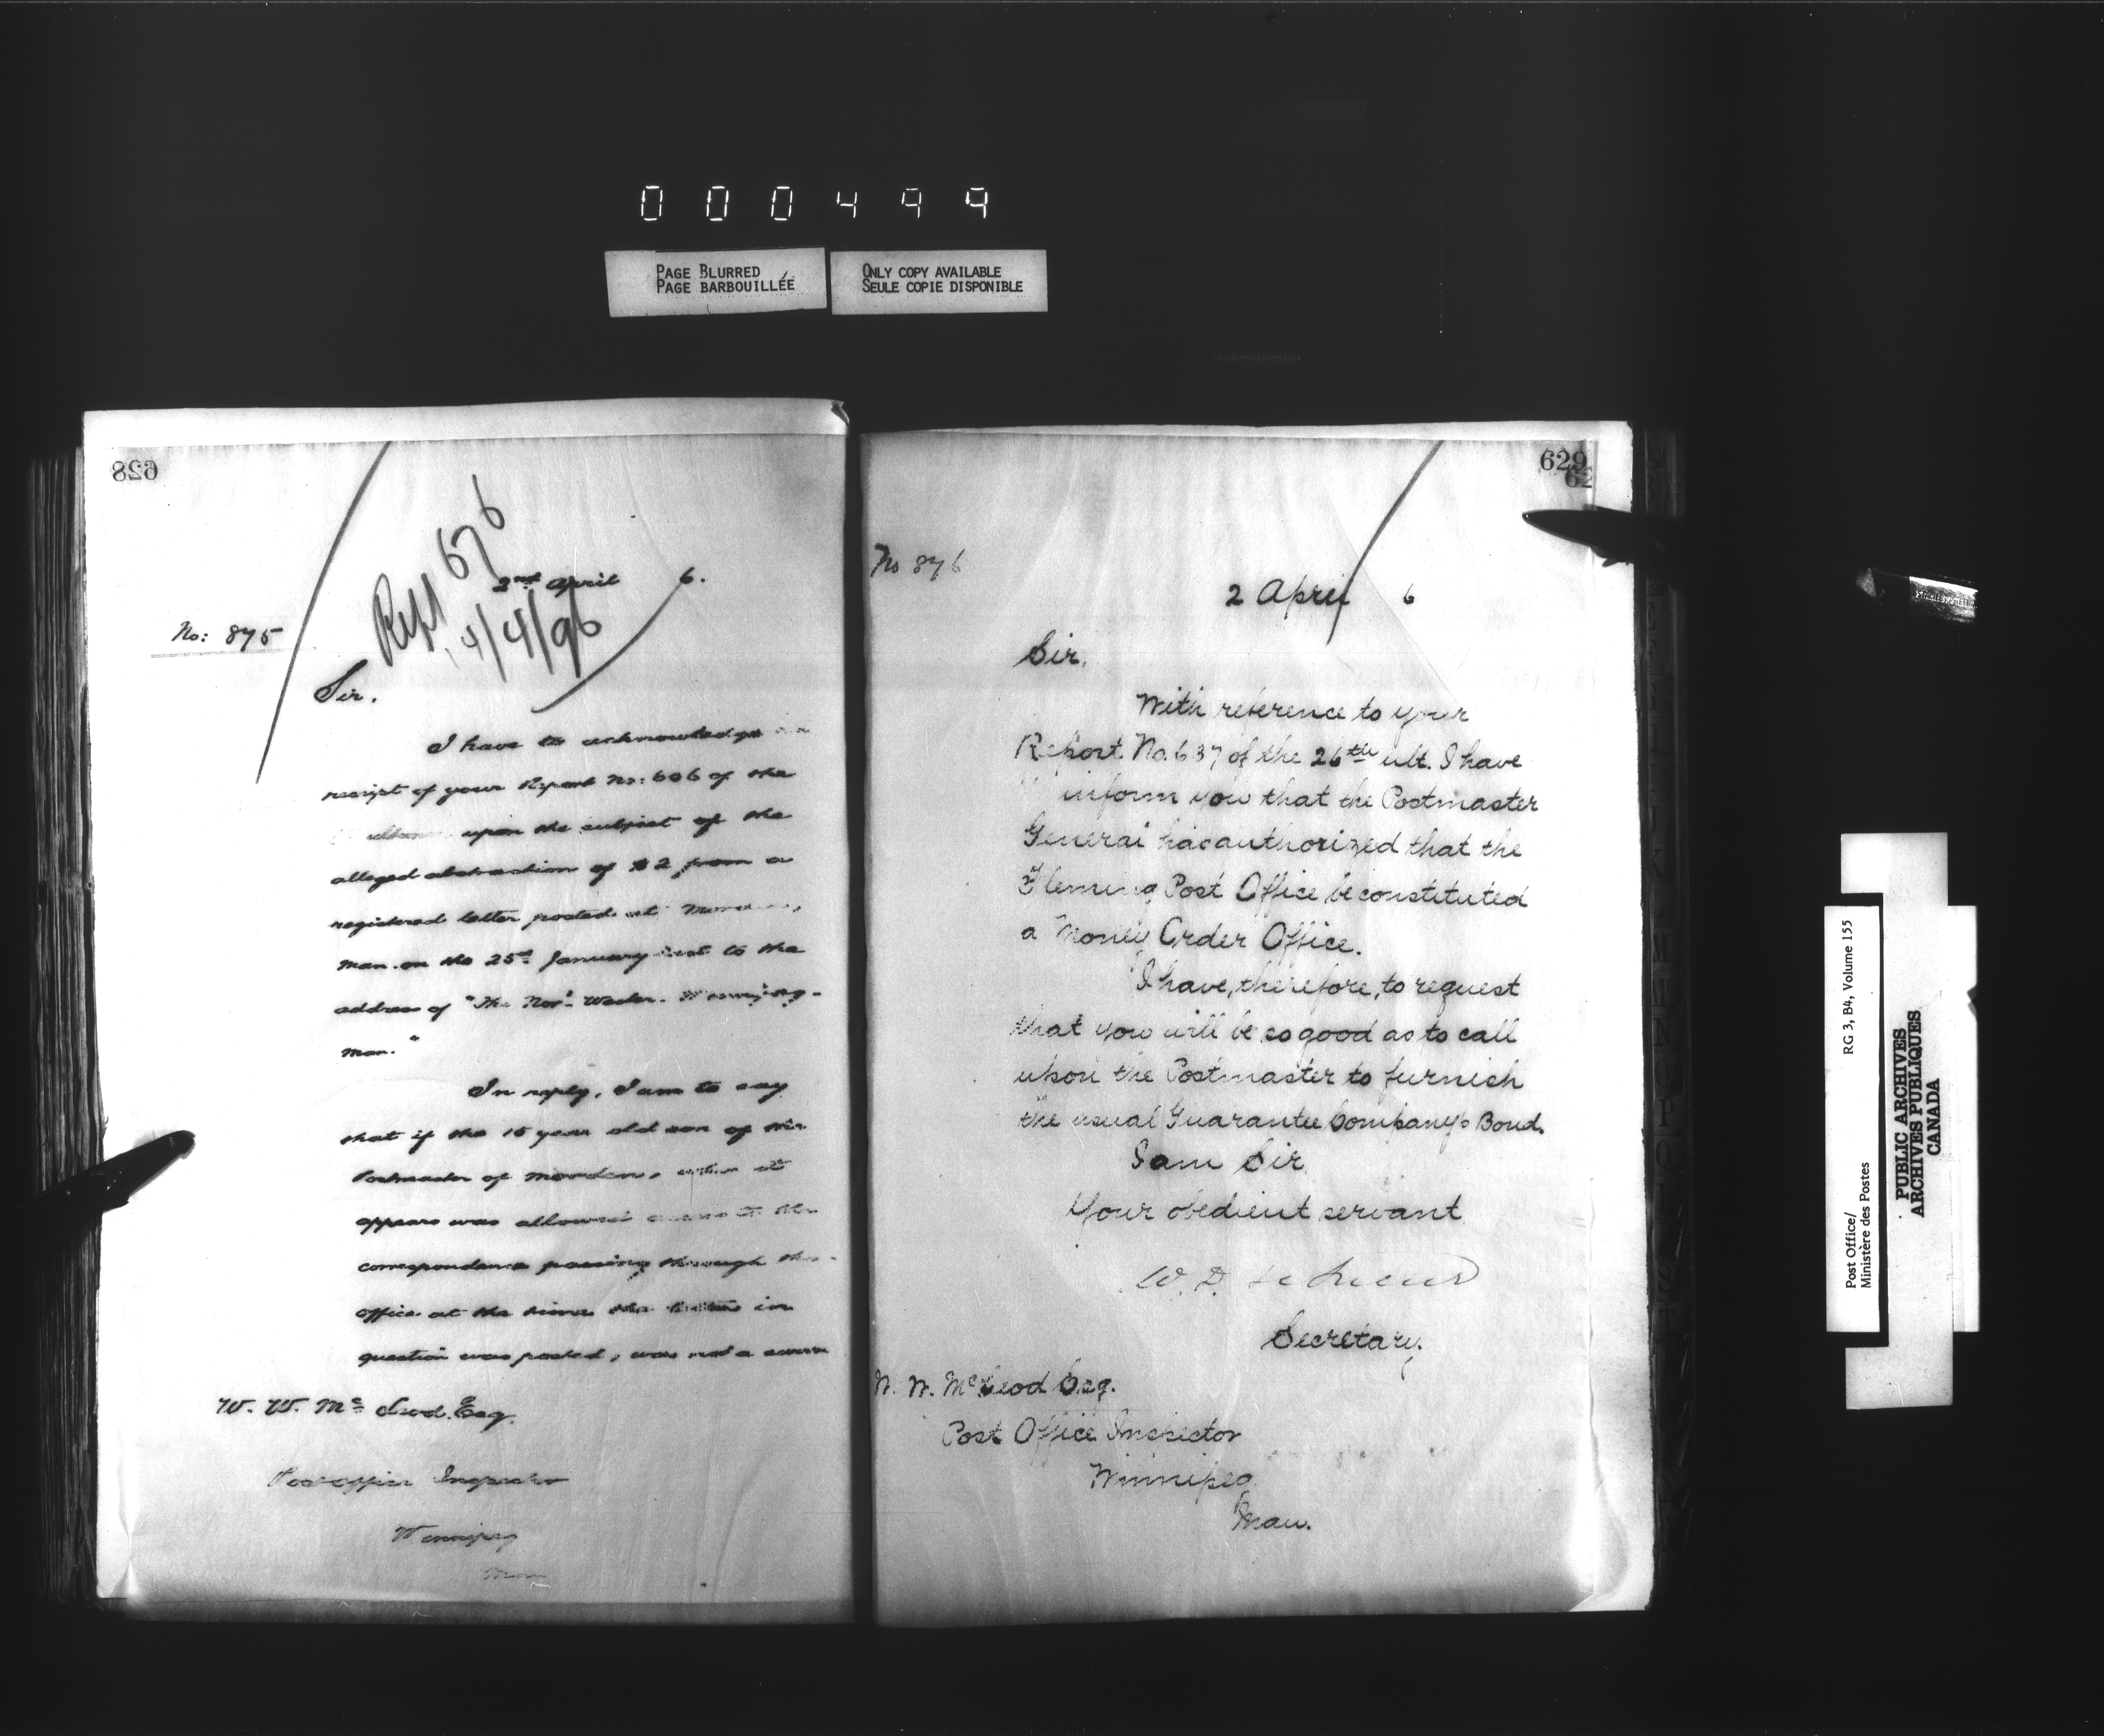 000499
PAGE BLURRED
PAGE BARBOUILLÉE
ONLY COPY AVAILABLE
SEULE COPIE DISPONIBLE
628
Repl 676
4/4/96
2nd April 6.
No: 875
Sir.
I have to acknowledge
receipt of your Report No: 606 of the
upon the subject of the
alleged abstraction of $2 from a
registered letter posted at
Man. on the 25th January to the
address of "The Nor'-Wester. Winnipeg-
Man."
In reply, I am to say
that if the 15 year old son of the
Postmaster of Morden, it
appears was allowed access to the
correspondence passing through the
office at the time the letter in
question was posted, was not a sworn
W. W. Mc Leod. Esq.
Post Office Inspector
Winnipeg
Man
629
62
No 876
2 April 6
Sir,
With reference to your
Report No. 637 of the 26th ult. I have
inform you that the Postmaster
General has authorized that the
Fleming Post Office be constituted
a Money Order Office.
I have, therefore, to request
that you will be so good as to call
upon the Postmaster to furnish
the usual Guarantee Company's Bond.
I am Sir
Your obedient servant
W. D. LeSueur
Secretary.
W. W. McLeod Esq.
Post Office Inspector
Winnipeg
Man.
Post Office/ RG 3, B4, Volume 155
Ministère des Postes
PUBLIC ARCHIVES
ARCHIVES PUBLIQUES
CANADA